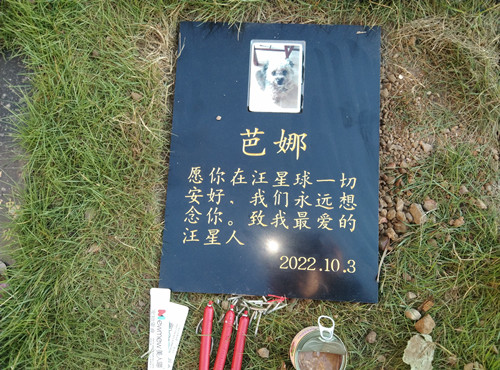 芭娜
愿你在汪星球一切
安好、我们永远想
念你。致我最爱的
汪星人
2022.10.3